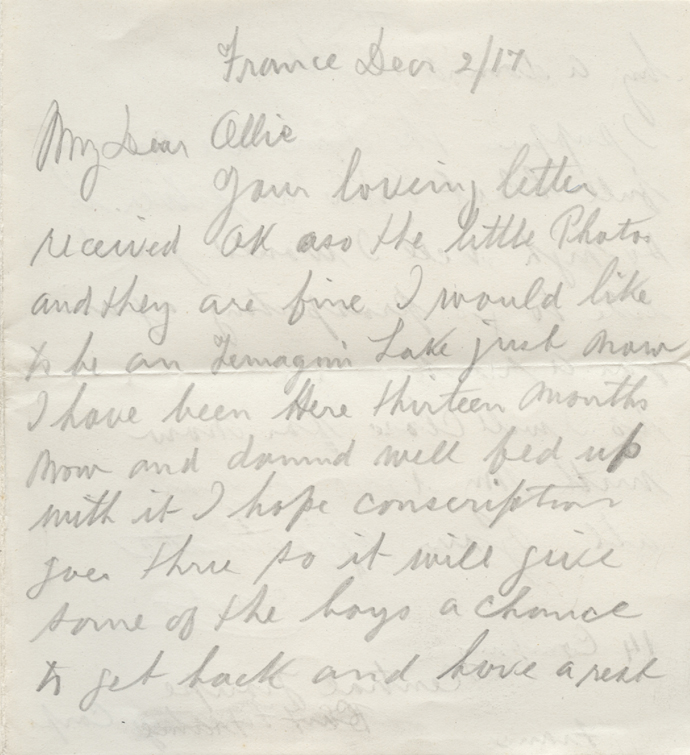 France Decr 2/17
My Dear Ollie
Your loving letter
received OK aso the little Photos
and they are fine I would like
to be on Temagimi Lake just now
I have been Here thirteen months
now and damnd well fed up
with it I hope conscription
goes thrue so it will give
some of the boys a chance
to get back and have a rest